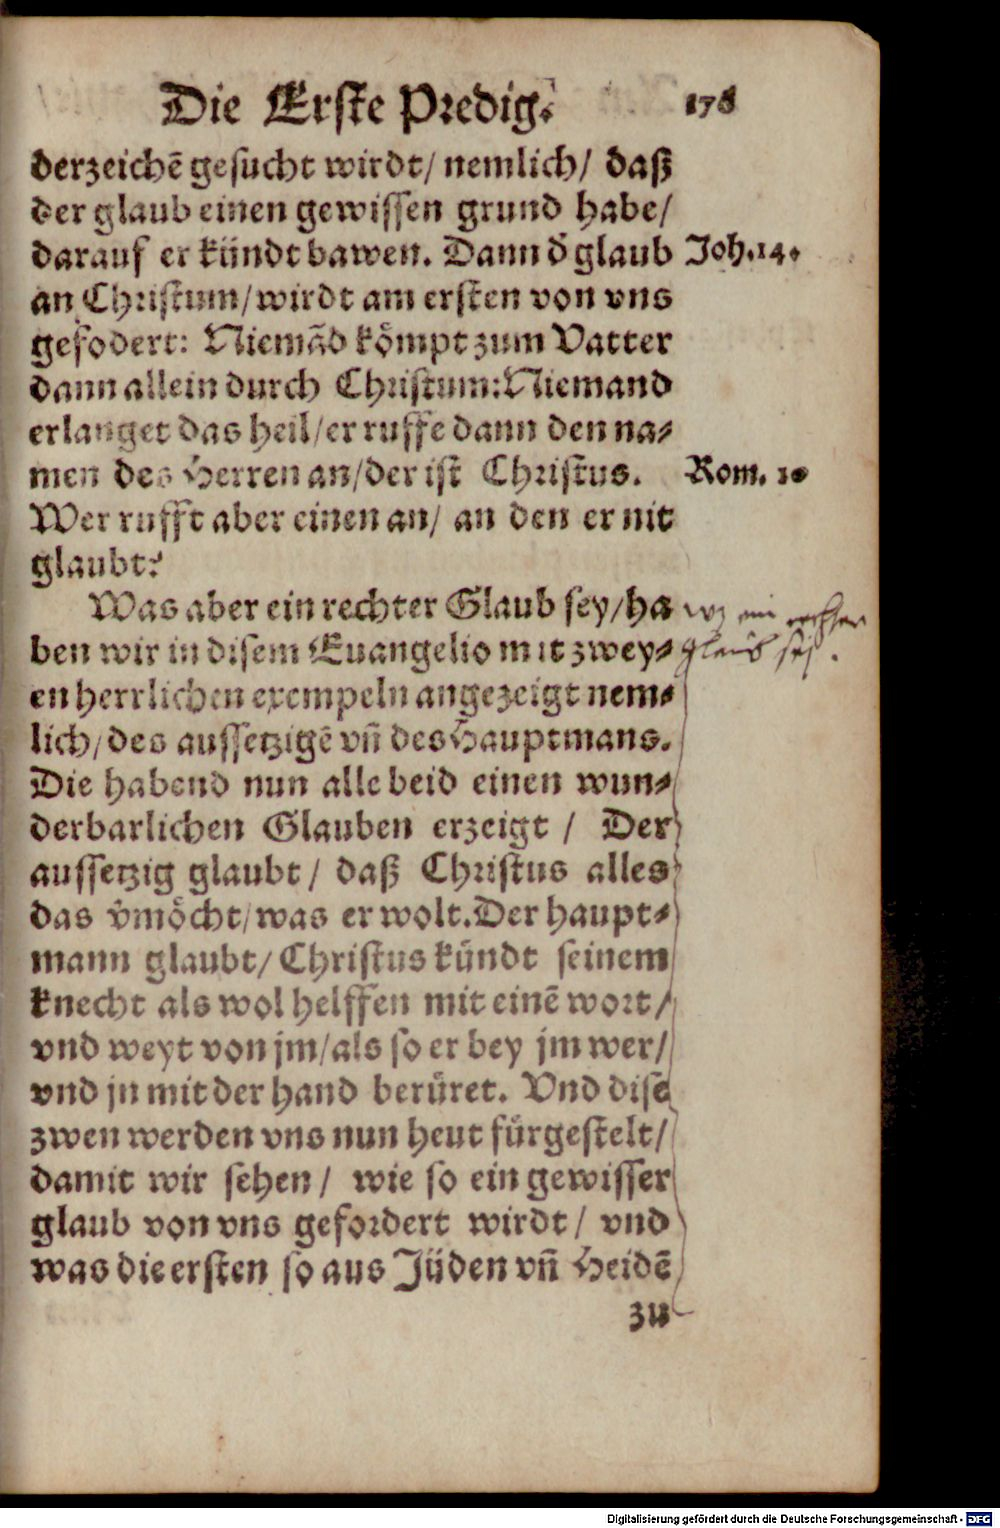 Die Erste Predig. 178
derzeichē gesucht wirdt/ nemlich/ daß
der glaub einen gewissen grund habe/
darauf er kündt bawen. Dann d̄ glaub Joh. 14.
an Christum/ wirdt am ersten von vns
gefodert: Niemād kömpt zum Vatter
dann allein durch Christum: Niemand
erlanget das heil/ er ruffe dann den na-
men des Herren an/ der ist Christus. Rom. 10
Wer rufft aber einen an/ an den er nit
glaubt?
Was aber ein rechter Glaub sey/ ha wz ein rechter
ben wir in disem Euangelio mit zwey- glaub sej.
en herrlichen exempeln angezeigt nem-
lich/ des aussetzigē vn̄ des Hauptmans.
Die habend nun alle beid einen wun-
derbarlichen Glauben erzeigt / Der
aussetzig glaubt / daß Christus alles
das v̄möcht/ was er wolt. Der haupt-
mann glaubt/ Christus kündt seinem
knecht als wol helffen mit einē wort/
vnd weyt von jm/ als so er bey jm wer/
vnd jn mit der hand berüret. Vnd dise
zwen werden vns nun heut fürgestelt/
damit wir sehen / wie so ein gewisser
glaub von vns gefordert wirdt / vnd
was die ersten so aus Jüden vn̄ Heidē
zu
Digitalisierung gefördert durch die Deutsche Forschungsgemeinschaft - DFG